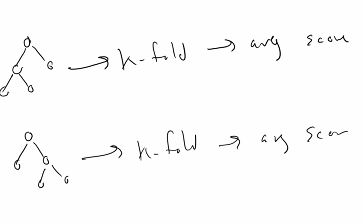 k-fold → avg score
k-fold → avg scor